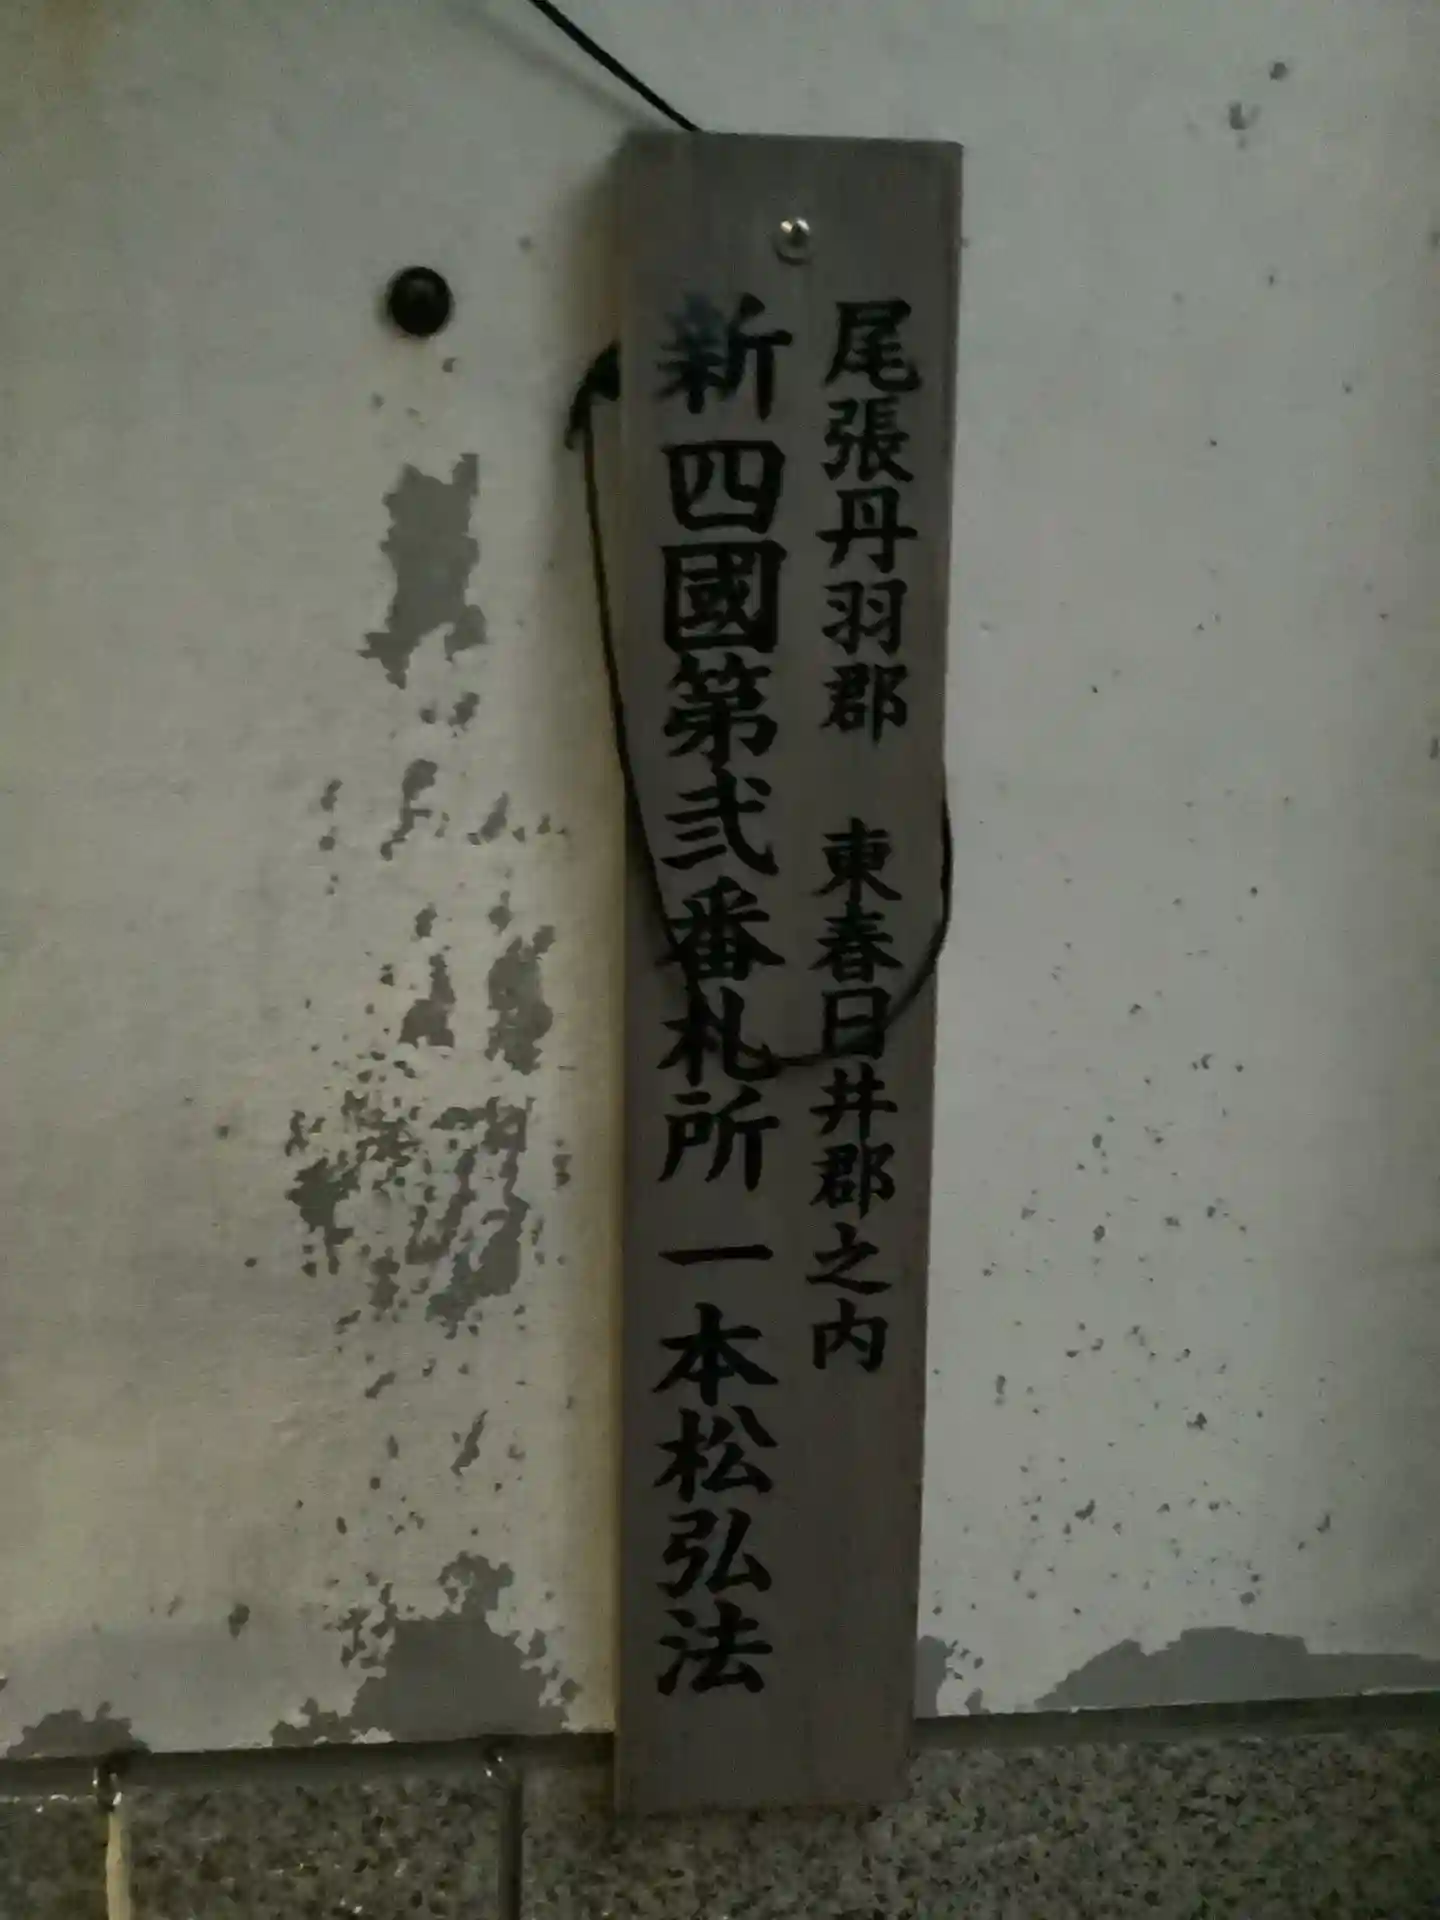 尾張丹羽郡　東春日井郡之内
新四國第弐番札所　一本松弘法